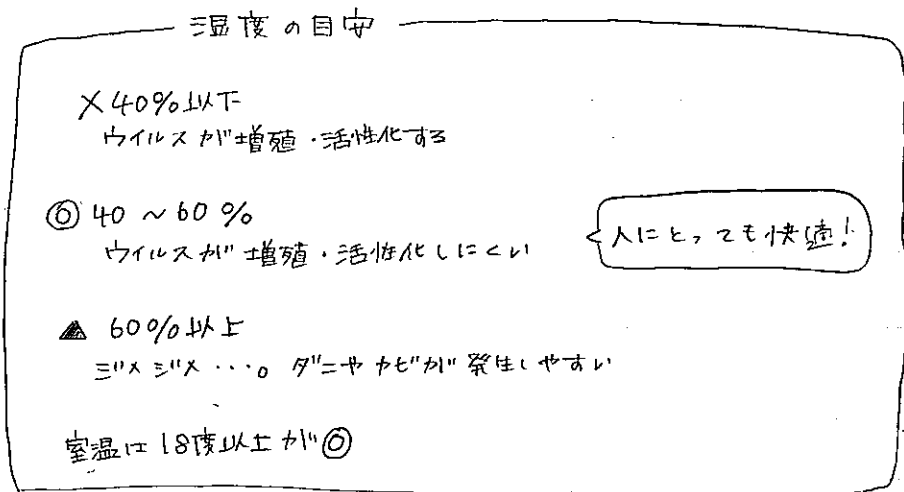 湿度の目安
×40%以下
ウイルスが増殖・活性化する
◎ 40～60%
ウイルスが増殖・活性化しにくい
人にとっても快適!
▲ 60%以上
ジメジメ・・・。ダニやカビが発生しやすい
室温は18度以上が◎